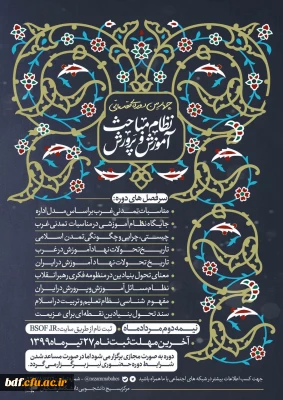 چهارمین دوره تخصصی
نظام مباحث
آموزش و پرورش
سرفصل های دوره:
مناسبات تمدنی غرب بر اساس مدل اداره
جایگاه نظام آموزشی در مناسبات تمدنی غرب
چیستی، چرایی و چگونگی تمدن اسلامی
تاریخ تحولات نهاد آموزش در غرب
تاریخ تحولات نهاد آموزش در ایران
معنای تحول بنیادین در منظومه فکری رهبر انقلاب
نظام مسائل آموزش و پرورش در ایران
مفهوم شناسی نظام تعلیم و تربیت در اسلام
سند تحول بنیادین نقطه‌ای برای عزیمت
نیمه دوم مرداد ماه
ثبت نام از طریق سایت: BSOF.IR
آخرین مهلت ثبت نام ۲۷ تیر ماه ۱۳۹۹
دوره به صورت مجازی برگزار می شود اما در صورت مساعد شدن
شرایط دوره حضوری نیز برگزار می گردد.
جهت کسب اطلاعات بیشتر در شبکه های اجتماعی با ما همراه باشید
bdf.cfu.ac.ir